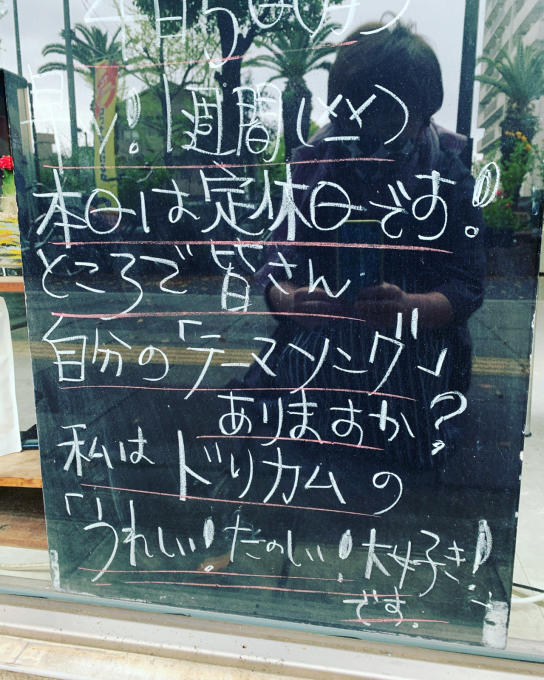 4月5日(月)
早ッ!1週間(××)
本日は定休日です!
ところで皆さん
自分の「テーマソング」
ありますか?
私はドリカムの
「うれしい!たのしい!大好き!」
です。